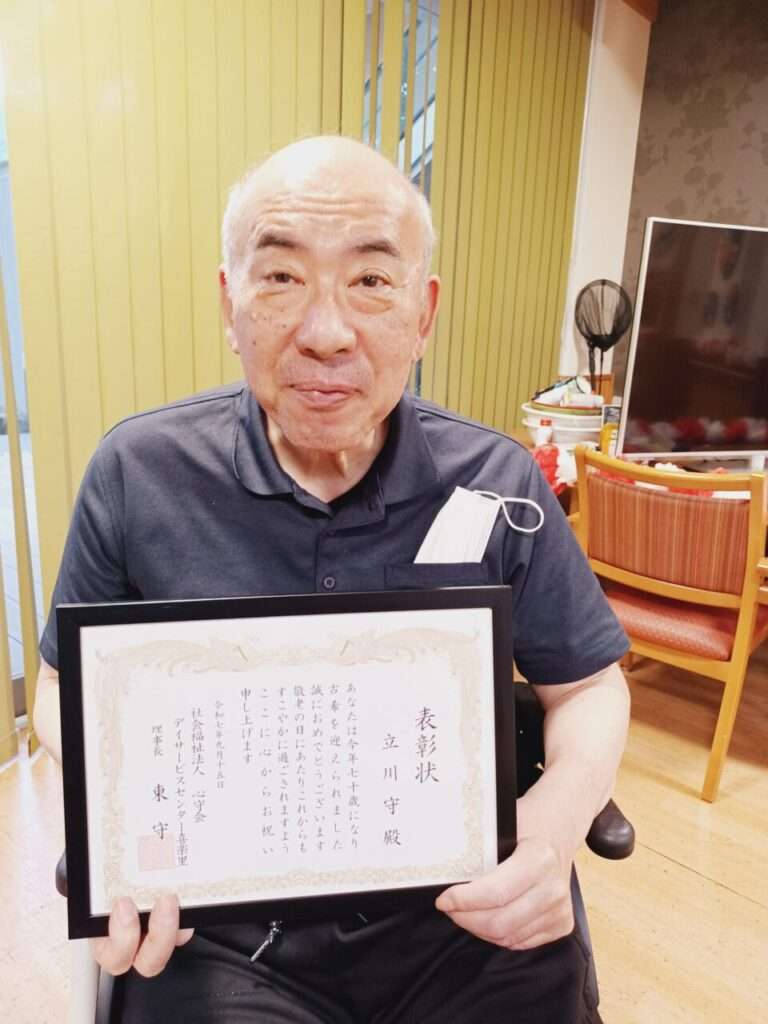 表彰状
立川守殿
あなたは今年七十歳になり
古希を迎えられました
誠におめでとうございます
敬老の日にあたりこれからも
すこやかに過ごされますよう
ここに心からお祝い
申し上げます
令和七年九月十五日
社会福祉法人 心守会
デイサービスセンター喜楽里
理事長 東守